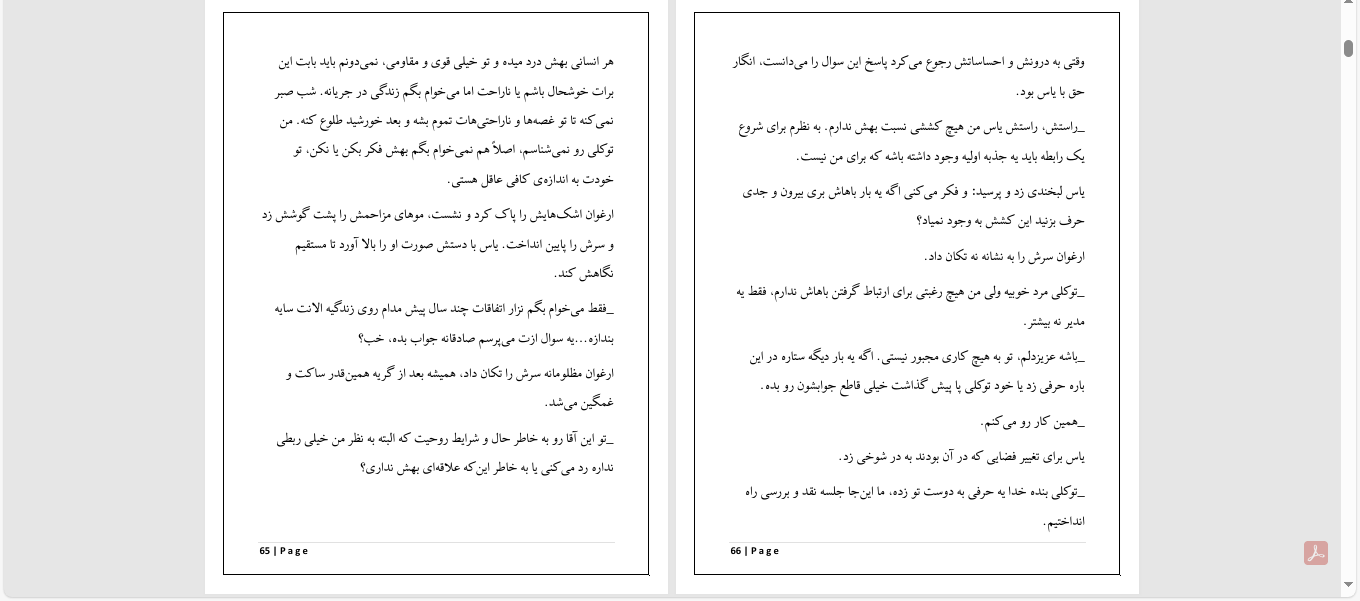 هر انسانی بهش درد میده و تو خیلی قوی و مقاومی، نمی‌دونم باید بابت این
برات خوشحال باشم یا ناراحت اما می‌خوام بگم زندگی در جریانه. شب صبر
نمی‌کنه تا تو غصه‌ها و ناراحتی‌هات تموم بشه و بعد خورشید طلوع کنه. من
توکلی رو نمی‌شناسم، اصلاً هم نمی‌خوام بگم بهش فکر بکن یا نکن، تو
خودت به اندازه‌ی کافی عاقل هستی.
ارغوان اشک‌هایش را پاک کرد و نشست، موهای مزاحمش را پشت گوشش زد
و سرش را پایین انداخت. یاس با دستش صورت او را بالا آورد تا مستقیم
نگاهش کند.
_فقط می‌خوام بگم نزار اتفاقات چند سال پیش مدام روی زندگیه الانت سایه
بندازه...یه سوال ازت می‌پرسم صادقانه جواب بده، خب؟
ارغوان مظلومانه سرش را تکان داد، همیشه بعد از گریه همین‌قدر ساکت و
غمگین می‌شد.
_تو این آقا رو به خاطر حال و شرایط روحیت که البته به نظر من خیلی ربطی
نداره رد می‌کنی یا به خاطر این‌که علاقه‌ای بهش نداری؟
65 | Page
وقتی به درونش و احساساتش رجوع می‌کرد پاسخ این سوال را می‌دانست، انگار
حق با یاس بود.
_راستش، راستش یاس من هیچ کششی نسبت بهش ندارم. به نظرم برای شروع
یک رابطه باید یه جذبه اولیه وجود داشته باشه که برای من نیست.
یاس لبخندی زد و پرسید: و فکر می‌کنی اگه یه بار باهاش بری بیرون و جدی
حرف بزنید این کشش به وجود نمیاد؟
ارغوان سرش را به نشانه نه تکان داد.
_توکلی مرد خوبیه ولی من هیچ رغبتی برای ارتباط گرفتن باهاش ندارم، فقط یه
مدیر نه بیشتر.
_باشه عزیزدلم، تو به هیچ کاری مجبور نیستی. اگه یه بار دیگه ستاره در این
باره حرفی زد یا خود توکلی پا پیش گذاشت خیلی قاطع جوابشون رو بده.
_همین کار رو می‌کنم.
یاس برای تغییر فضایی که در آن بودند به در شوخی زد.
_توکلی بنده خدا یه حرفی به دوست تو زده، ما این‌جا جلسه نقد و بررسی راه
انداختیم.
66 | Page